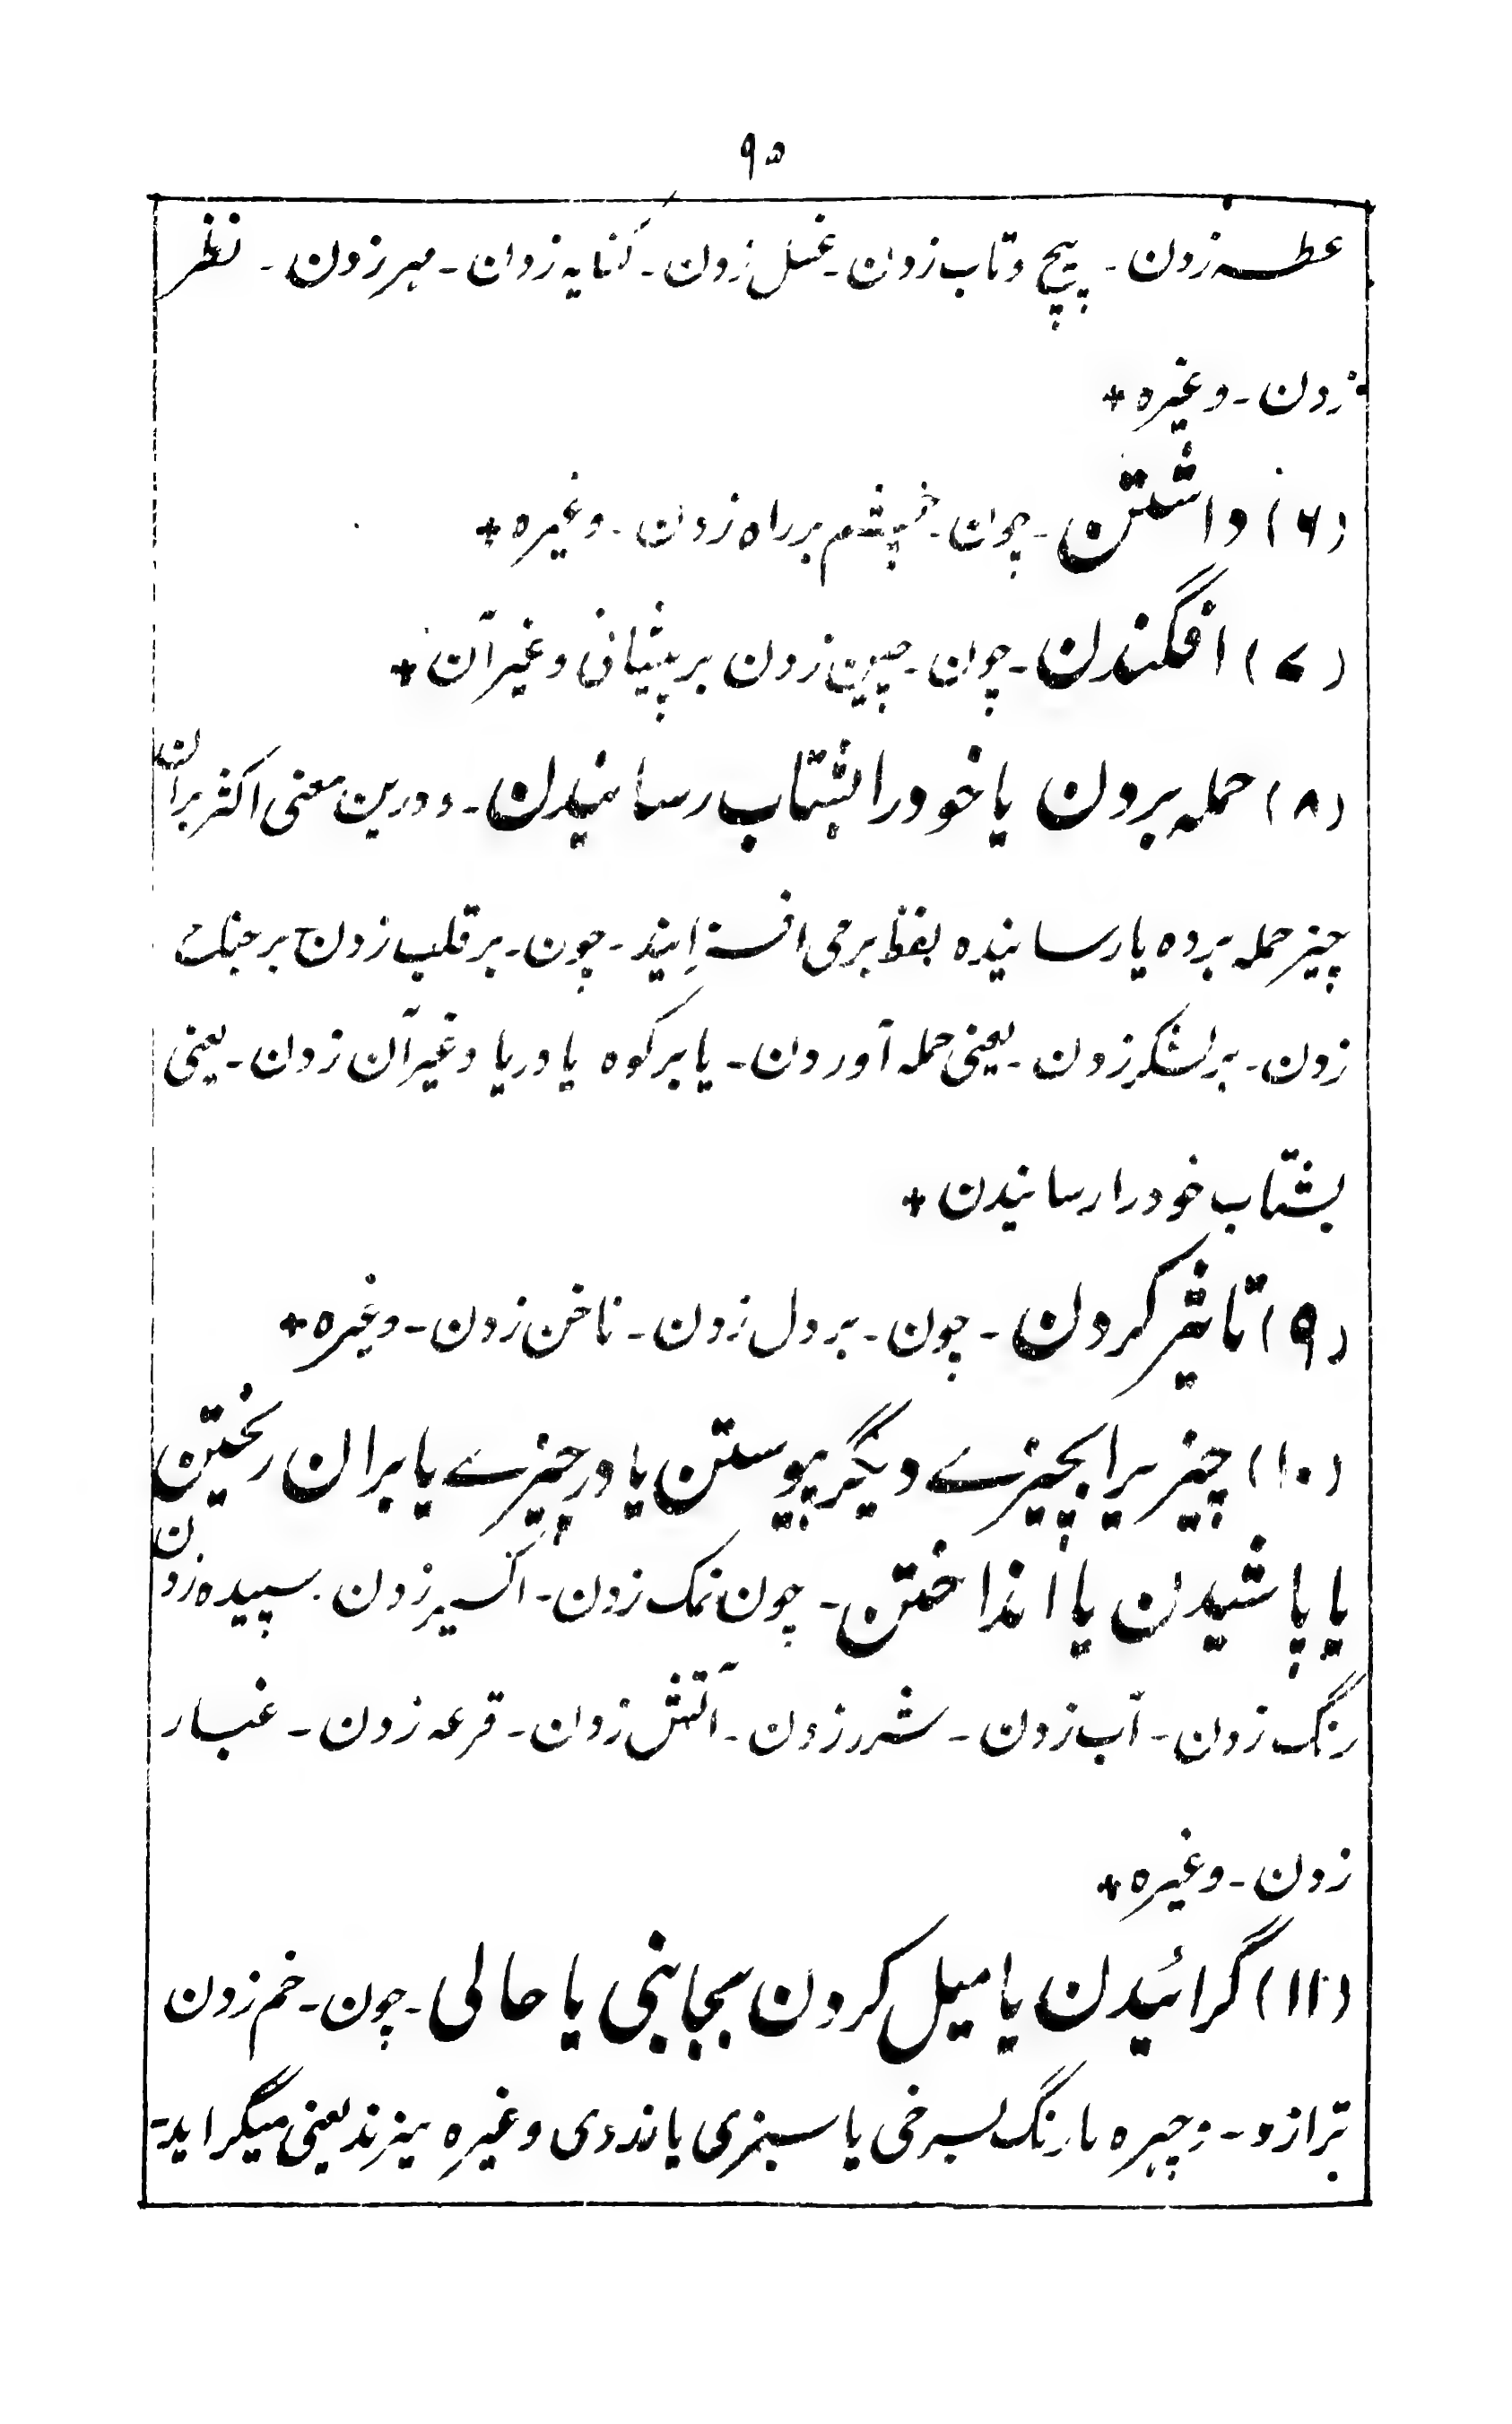 ۹۵
عطسه زدن - پیچ و تاب زدن - غسل زدن - کنایه زدن - مهر زدن - نظر
زدن - وغیره +
(۶) داشتن - چون - چشم بر راه زدن - وغیره +
(۷) افگندن - چون - چین زدن بر پیشانی وغیر آن +
(۸) حمله بردن یا خود را بشتاب رسانیدن - و درین معنی اکثر بر آن
چیز حمله برده یا رسانیده لفظ بر می افزایند - چون - بر قلب زدن بر جناح
زدن - بر لشکر زدن - یعنی حمله آوردن - یا بر کوه یا دریا وغیر آن زدن - یعنی
بشتاب خود را رسانیدن +
(۹) تاثیر کردن - چون - بر دل زدن - ناخن زدن - وغیره +
(۱۰) چیزیرا بچیزے دیگر پیوستن یا در چیزے یا بران ریختن
یا پاشیدن یا انداختن - چون نمک زدن - اکسیر زدن - سپیده زدن
رنگ زدن - آب زدن - شرر زدن - آتش زدن - قرعه زدن - غبار
زدن - وغیره +
(۱۱) گرائیدن یا میل کردن بجانبی یا حالی - چون - خم زدن
ترازو - و چهره یا رنگ بسرخی یا سبزی یا زردی وغیره میزند یعنی میگراید -